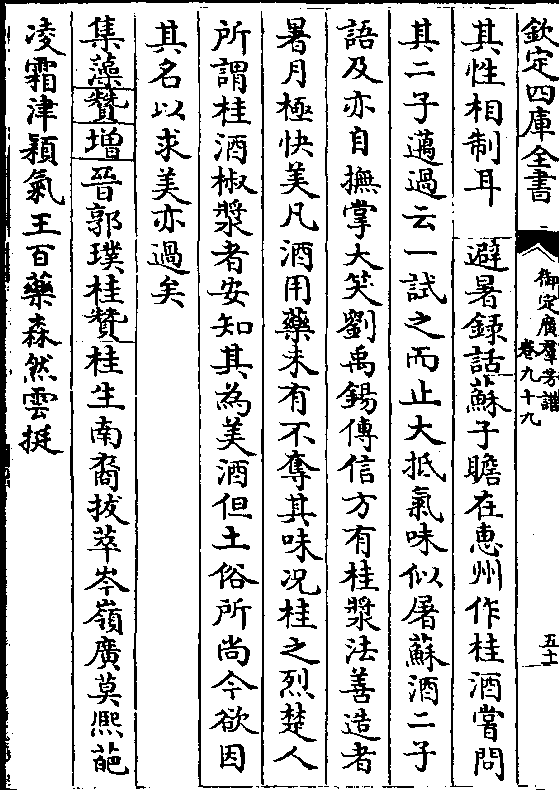 欽定四庫全書
御定廣羣芳譜
卷九十九
五十
其性相制耳　避暑録話蘇子瞻在惠州作桂酒嘗問
其二子邁過云一試之而止大抵氣味似屠蘇酒二子
語及亦自撫掌大笑劉禹錫傳信方有桂漿法善造者
暑月極快美凡酒用藥未有不奪其味况桂之烈楚人
所謂桂酒椒漿者安知其為美酒但土俗所尚今欲因
其名以求美亦過矣
集藻贊增晉郭璞桂贊桂生南裔拔萃岑嶺廣莫熙葩
凌霜津穎氣王百藥森然雲挺